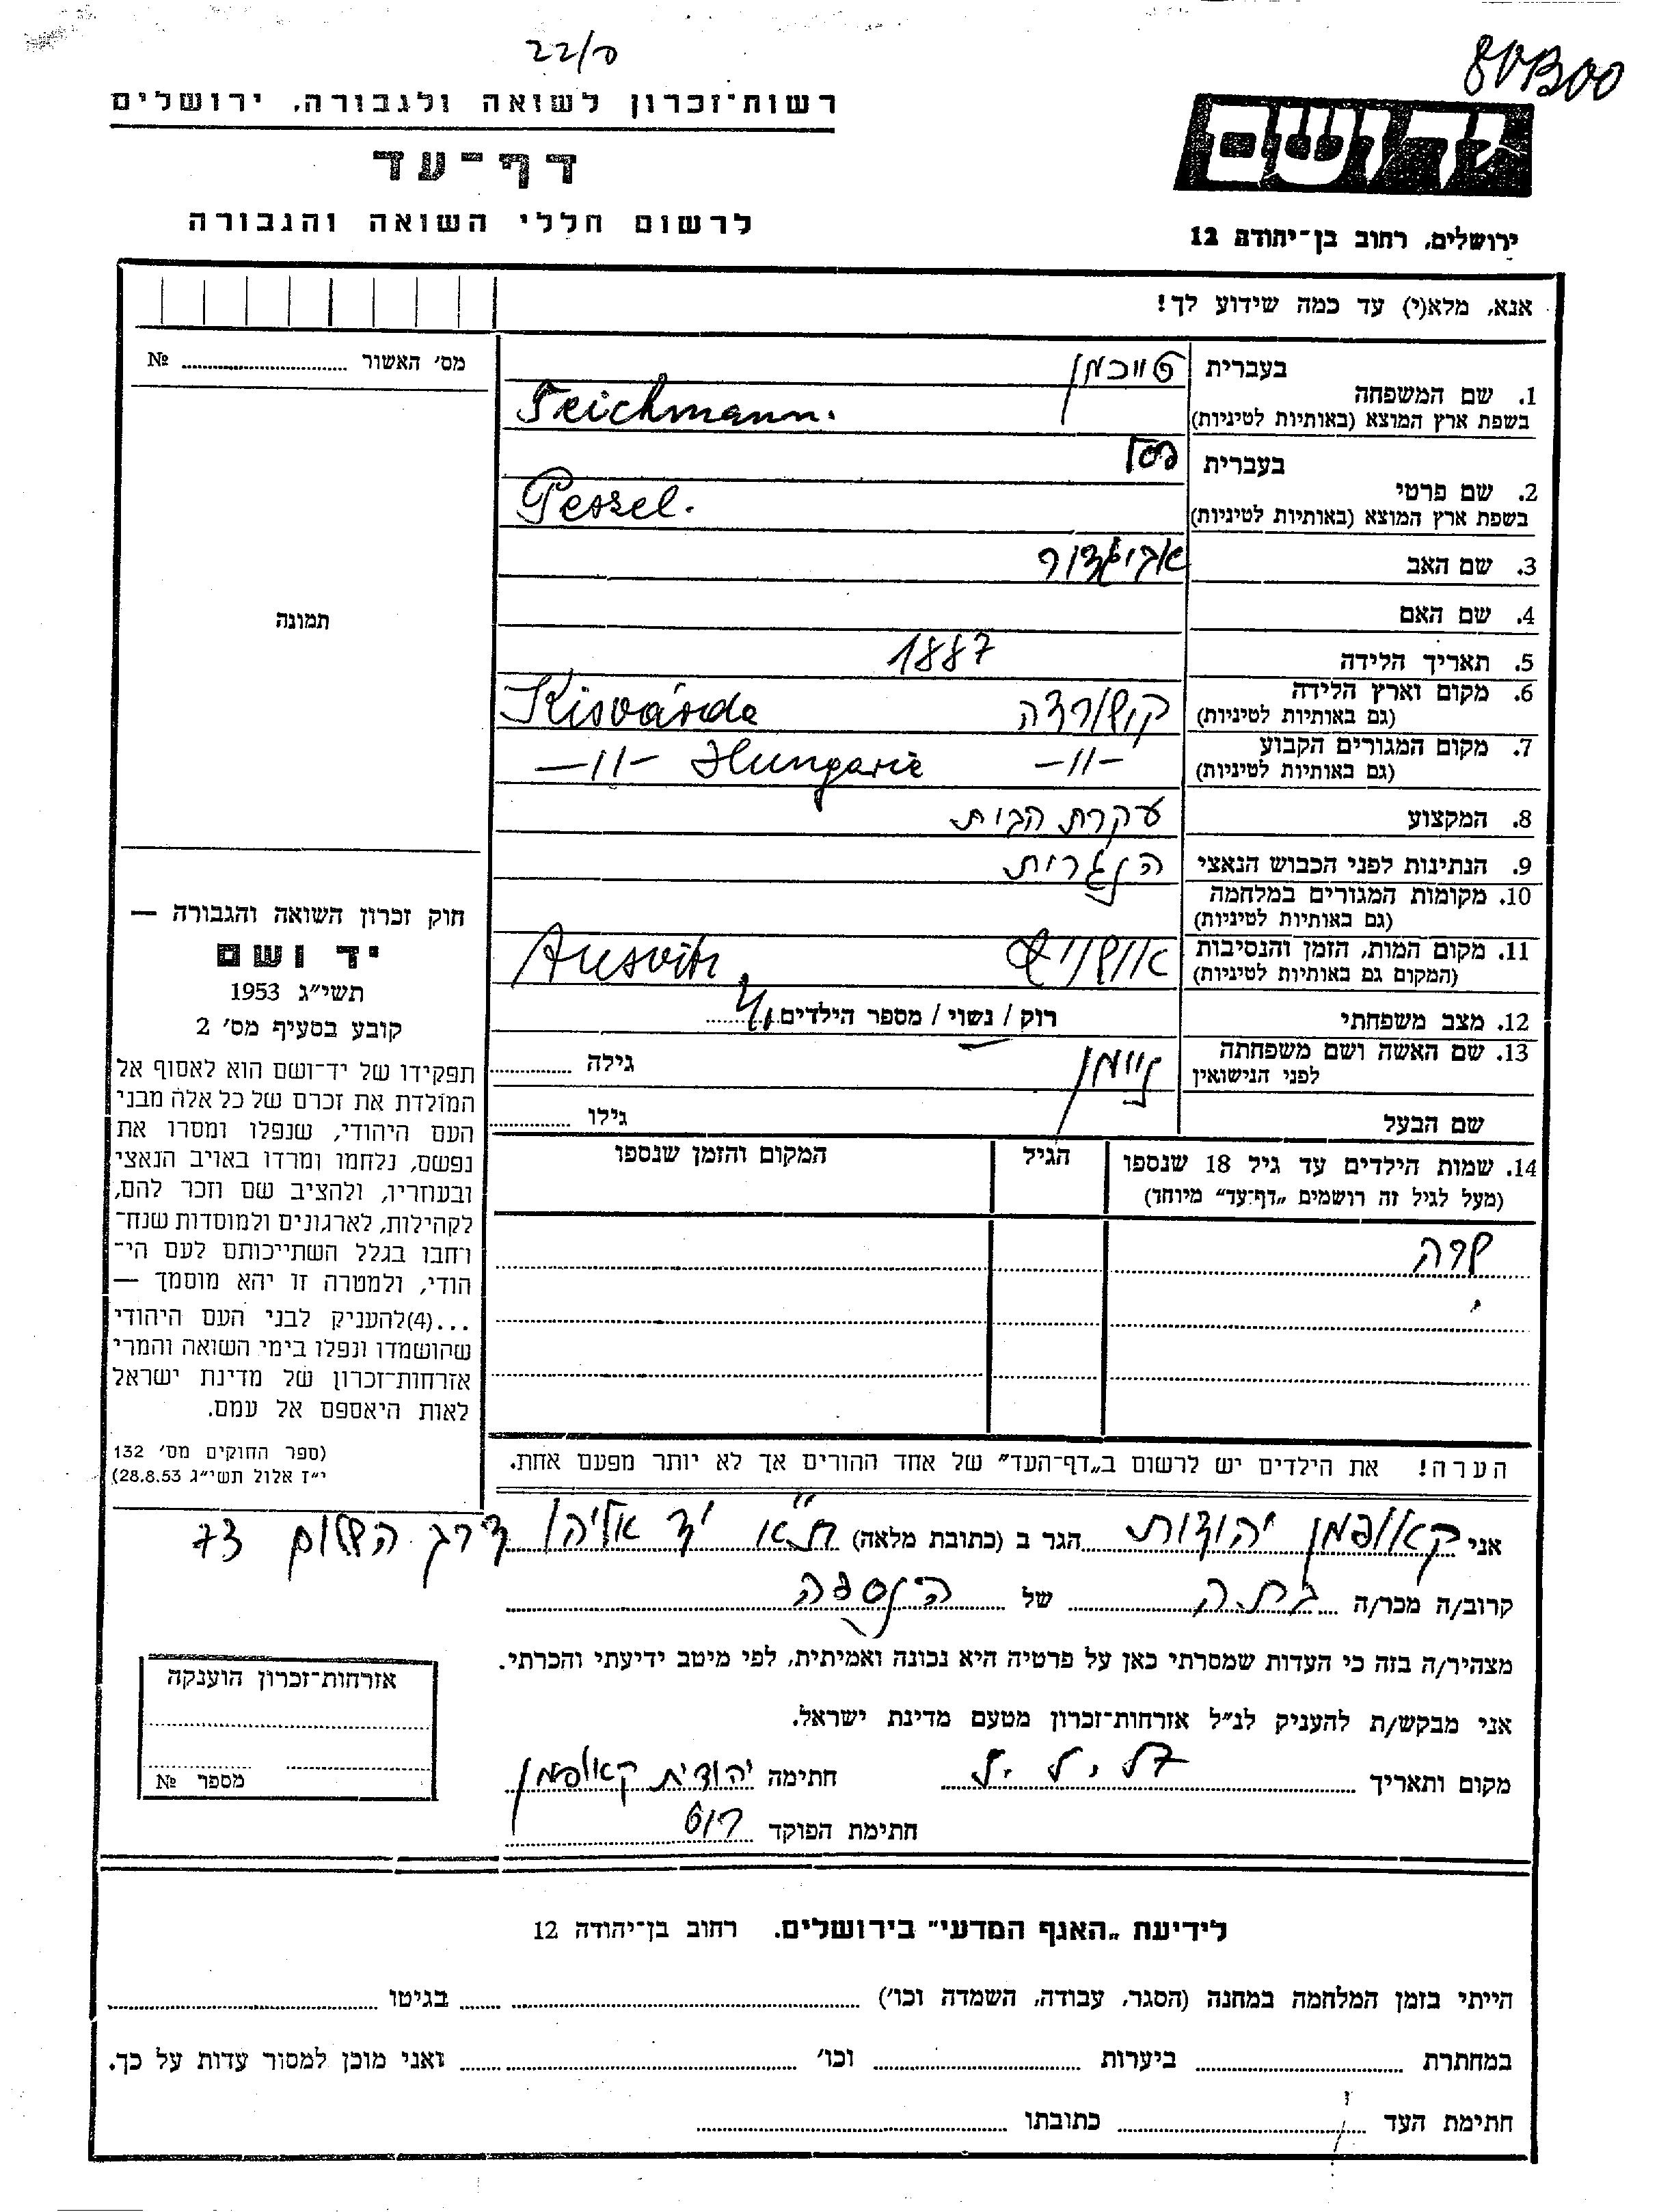 22/ס
רשות־זכרון לשואה ולגבורה, ירושלים
דף־עד
לרשום חללי השואה והגבורה
ידושם
ירושלים, רחוב בן־יהודה 12
אנא, מלא(י) עד כמה שידוע לך!
מס׳ האשור № 
תמונה
בעברית טייכמן
1. שם המשפחה
בשפת ארץ המוצא (באותיות לטיניות) Teichmann.
בעברית פסל
2. שם פרטי
בשפת ארץ המוצא (באותיות לטיניות) Peszel.
3. שם האב אביגדור
4. שם האם
5. תאריך הלידה 1887
6. מקום וארץ הלידה
(גם באותיות לטיניות) קישורדה Kisvárda
7. מקום המגורים הקבוע
(גם באותיות לטיניות) —״— —״— Hungarie
8. המקצוע עקרת הבית
9. הנתינות לפני הכבוש הנאצי הונגרית
10. מקומות המגורים במלחמה
(גם באותיות לטיניות)
11. מקום המות, הזמן והנסיבות
(המקום גם באותיות לטיניות) אושויץ Ausvitz
12. מצב משפחתי רוק / נשוי / מספר הילדים
13. שם האשה ושם משפחתה
לפני הנישואין ניימן גילה
שם הבעל גילו
14. שמות הילדים עד גיל 18 שנספו הגיל המקום והזמן שנספו
(מעל לגיל זה רושמים „דף־עד״ מיוחד)
שרה
הערה! את הילדים יש לרשום ב„דף־העד״ של אחד ההורים אך לא יותר מפעם אחת.
חוק זכרון השואה והגבורה —
יד ושם
תשי״ג 1953
קובע בסעיף מס׳ 2
תפקידו של יד־ושם הוא לאסוף אל
המולדת את זכרם של כל אלה מבני
העם היהודי, שנפלו ומסרו את
נפשם, נלחמו ומרדו באויב הנאצי
ובעוזריו, ולהציב שם וזכר להם,
לקהילות, לארגונים ולמוסדות שנח־
רחבו בגלל השתייכותם לעם הי־
הודי, ולמטרה זו יהא מוסמך —
...(4)להעניק לבני העם היהודי
שהושמדו ונפלו בימי השואה והמרי
אזרחות־זכרון של מדינת ישראל
לאות היאספם אל עמם.
(ספר החוקים מס׳ 132
י״ז אלול תשי״ג 28.8.53)
אני קאופמן יהודית הגר ב (כתובת מלאה) ת״א יד אליהו דרך השלום 73
קרוב/ה מכר/ה בתה של הנספה
מצהיר/ה בזה כי העדות שמסרתי כאן על פרטיה היא נכונה ואמיתית, לפי מיטב ידיעתי והכרתי.
אני מבקש/ת להעניק לנ״ל אזרחות־זכרון מטעם מדינת ישראל.
מקום ותאריך חתימה יהודית קאופמן
חתימת הפוקד
אזרחות־זכרון הוענקה
מספר №
לידיעת „האגף המדעי״ בירושלים. רחוב בן־יהודה 12
הייתי בזמן המלחמה במחנה (הסגר, עבודה, השמדה וכו׳) בגיטו
במחתרת ביערות וכו׳ ואני מוכן למסור עדות על כך.
חתימת העד כתובתו